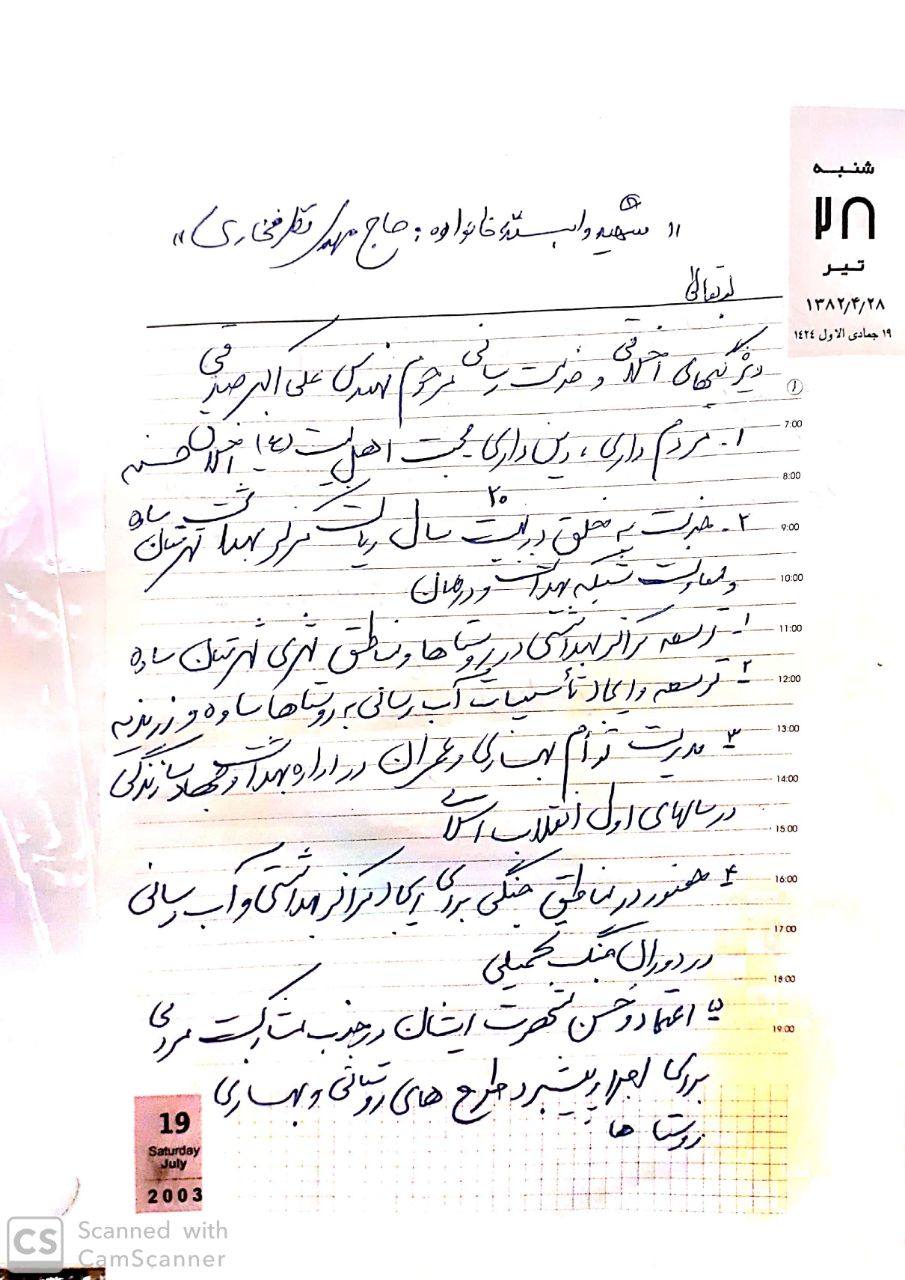 شنبه
۲۸
تیر
۱۳۸۲/۴/۲۸
۱۹ جمادی الاول ۱۴۲۴
« شهید وابسته خانواده : حاج مهدی فخاری »
ویژگیهای اخلاقی و خدمت رسانی مرحوم مهندس علی اکبر صدقی
۱
۱- مردم داری ، دین داری محبت اهل بیت (ع) اخلاق حسنه
7:00
8:00
۲- خدمت به خلق در بیست ۲۰ سال ریاست مرکز بهداشت شهرستان ساوه
9:00
و معاونت شبکه بهداشت و درمان
10:00
۱- توسعه مراکز بهداشتی در روستاها و مناطق شهری شهرستان ساوه
11:00
۲- توسعه و ایجاد تأسیسات آب رسانی به روستاها ساوه و زرندیه
12:00
۳- مدیریت توأم بهسازی و عمران در اداره بهداشت و جهاد سازندگی
13:00
14:00
در سالهای اول انقلاب اسلامی
15:00
۴- حضور در مناطق جنگی برای ایجاد مراکز بهداشتی و آب رسانی
16:00
17:00
در دوران جنگ تحمیلی
18:00
۵- اعتماد و حسن شهرت ایشان در جذب مشارکت مردمی
19:00
برای اجرا و پیشبرد طرح های روستائی و بهسازی
روستا ها
19
Saturday
July
2003
CS Scanned with
CamScanner